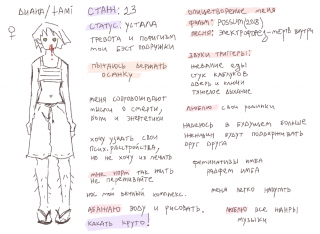 ДИАНА / ТАМІ
СТАЖ: 23
СТАТУС: УСТАЛА
ТРЕВОГА И ПОФИГИЗМ
МОИ БЭСТ ПОДРУЖКИ
ПЫТАЮСЬ ДЕРЖАТЬ
ОСАНКУ
МЕНЯ СОПРОВОЖДАЮТ
МЫСЛИ О СМЕРТИ,
БОГИ И ЭНЕРГЕТИКИ
ХОЧУ УЗНАТЬ СВОИ
ПСИХ. РАССТРОЙСТВА,
НО НЕ ХОЧУ ИХ ЛЕЧИТЬ
МНЕ НОРМ ТАК ЖИТЬ
НЕ ПЕРЕЖИВАЙТЕ
НОС МОЙ ВЕЧНЫЙ КОМПЛЕКС.
ОБОЖАЮ ЗОДУ И РИСОВАТЬ.
КАКАТЬ КРУТО!
ОЛИЦЕТВОРЕНИЕ МЕНЯ
ФИЛЬМ: POSSUM (2018)
ПЕСНЯ: ЭЛЕКТРОФОРЕЗ - МЕРТВ ВНУТРИ
ЗВУКИ ТРИГГЕРЫ:
ЖЕВАНИЕ ЕДЫ
СТУК КАБЛУКОВ
ДВЕРЬ И КЛЮЧИ
ТЯЖЕЛОЕ ДЫХАНИЕ
ЛЮБЛЮ СВОИ РОДИНКИ
НАДЕЮСЬ В БУДУЩЕМ БОЛЬШЕ
ЖЕНЩИН БУДУТ ПОДДЕРЖИВАТЬ
ДРУГ ДРУГА
ФЕМИНИТИВЫ ИМБА
РАДФЕМ ИМБА
МЕНЯ ЛЕГКО НАПУГАТЬ
ЛЮБЛЮ ВСЕ ЖАНРЫ
МУЗЫКИ